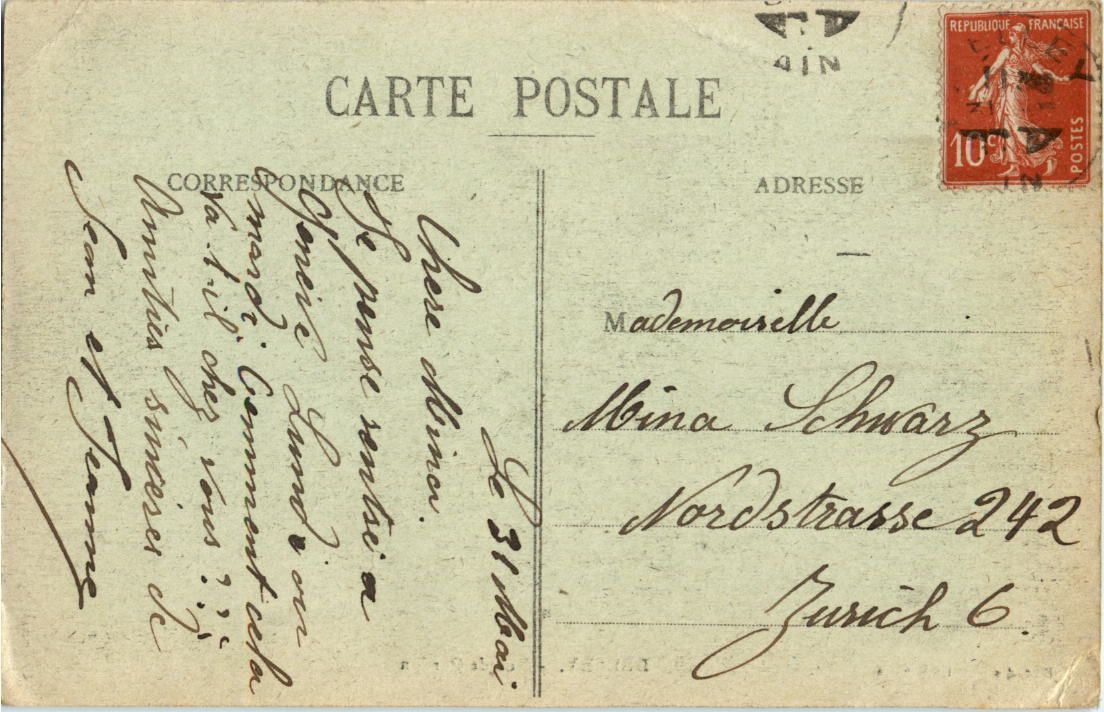 CARTE POSTALE
CORRESPONDANCE
ADRESSE
REPUBLIQUE FRANÇAISE
10c
POSTES
AIN
Le 31 Mai
Chere Mina.
Je pense rentre a
Geneve Lundi ou
mardi. Comment cela
va t'il chez vous ? ? ?
Amities sinceres de
Jean et Jeanne
Mademoiselle
Mina Schwarz
Nordstrasse 242
Zurich 6.